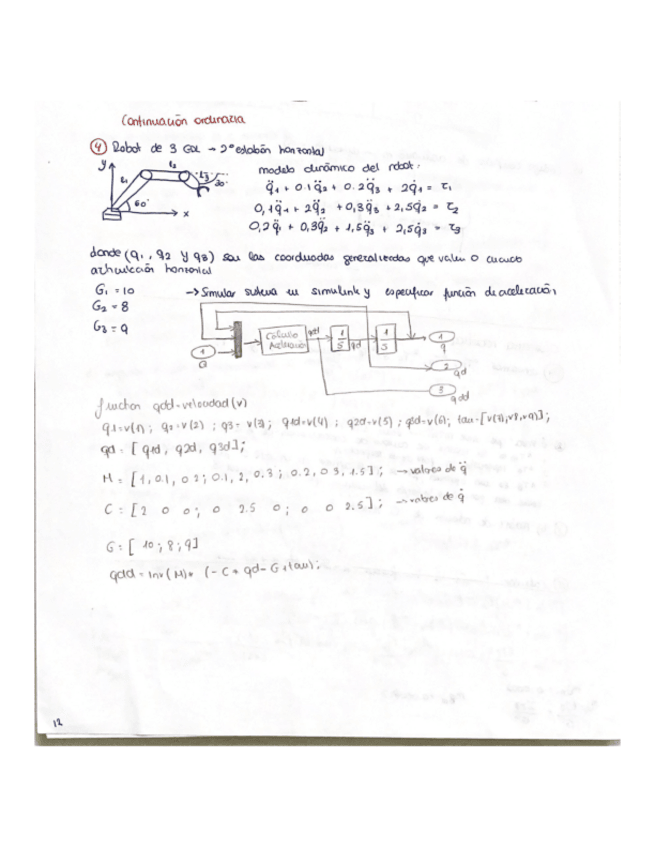 Continuación ordinaria
④ Robot de 3 GDL → 2º eslabón horizontal
y
l1
l2
l3
60°
30°
x
modelo dinámico del robot:
q̈1 + 0.1q̈2 + 0.2q̈3 + 2q̇1 = τ1
0,1q̈1 + 2q̈2 + 0,3q̈3 + 2,5q̇2 = τ2
0,2q̈1 + 0,3q̈2 + 1,5q̈3 + 2,5q̇3 = τ3
donde (q1, q2 y q3) son las coordenadas generalizadas que valen 0 cuando
articulación horizontal
G1 = 10
G2 = 8
G3 = 9
→ Simular sistema en simulink y especificar función de aceleración
1
G
Cálculo
Aceleración
qdd
1/S
qd
1/S
1
q
2
qd
3
qdd
function qdd=velocidad(v)
q1=v(1); q2=v(2); q3=v(3); q1d=v(4); q2d=v(5); q3d=v(6); tau=[v(7),v8,v9];
qd = [q1d, q2d, q3d];
M = [1, 0.1, 0.2; 0.1, 2, 0.3; 0.2, 0.3, 1.5]; → valores de q̈
C = [2 0 0; 0 2.5 0; 0 0 2.5]; → valores de q̇
G = [10; 8; 9]
qdd = inv(M)* (-C * qd - G + tau);
12